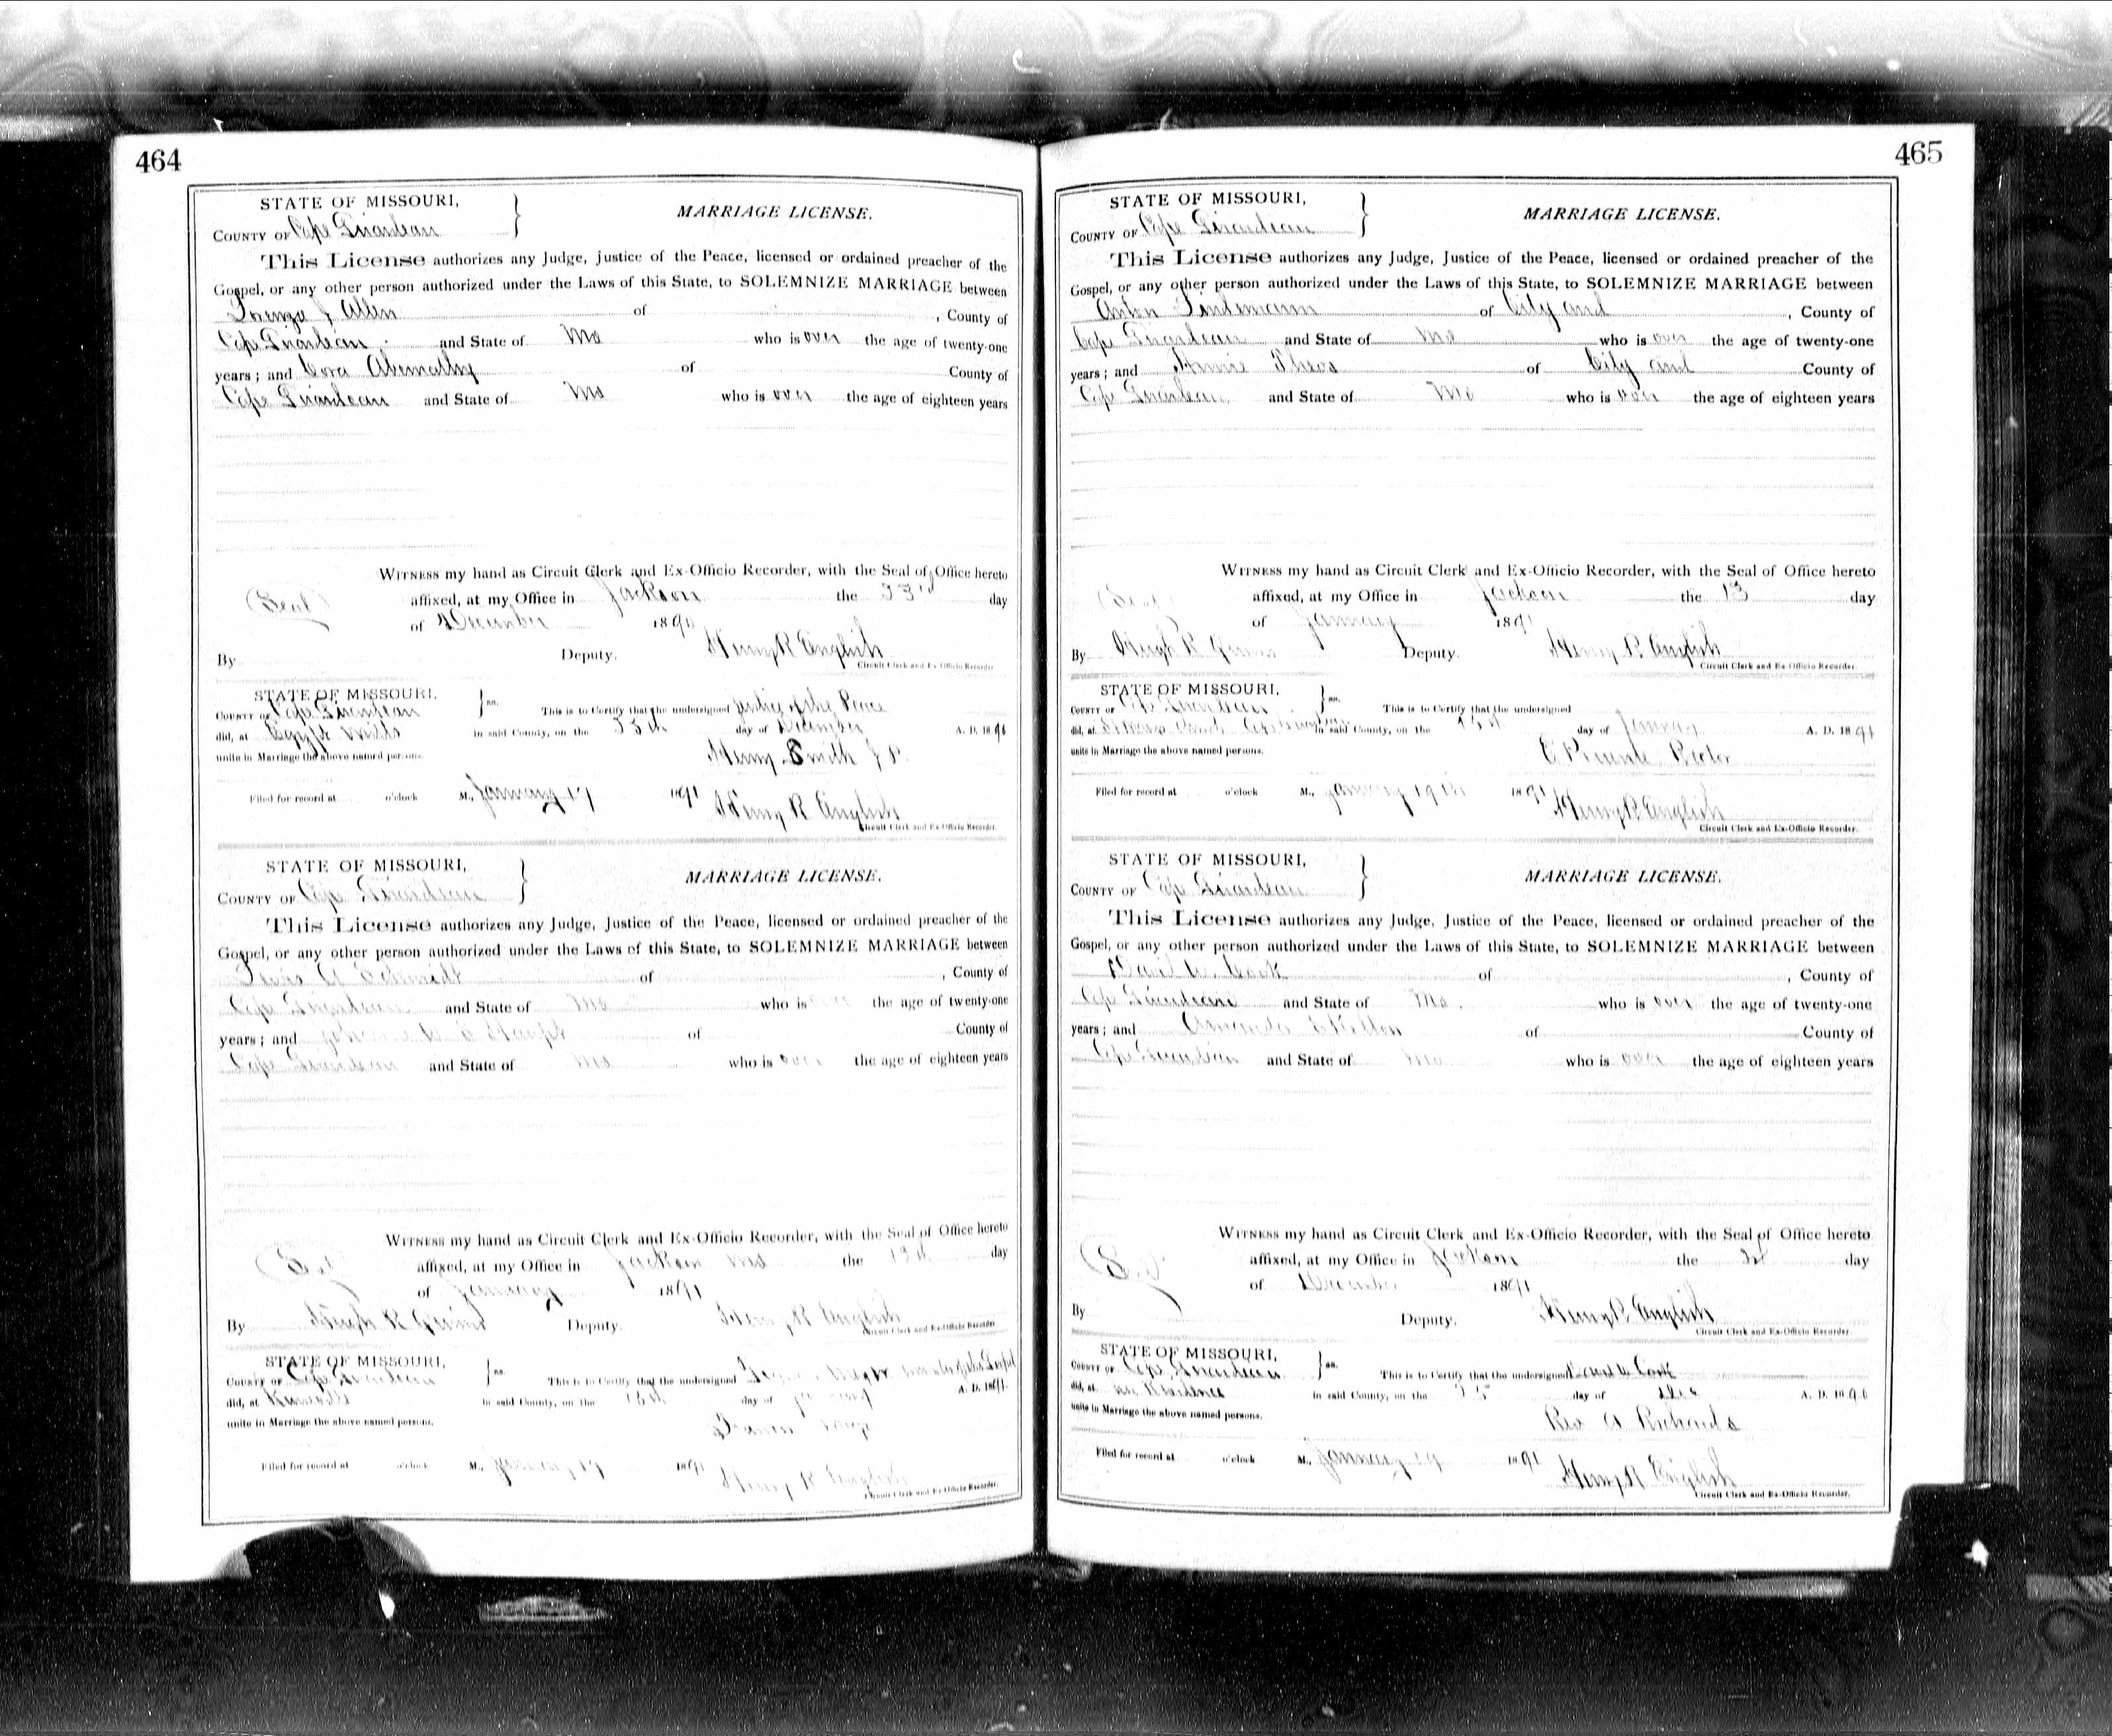 464
STATE OF MISSOURI,
COUNTY OF Cape Girardeau
MARRIAGE LICENSE.
This License authorizes any Judge, Justice of the Peace, licensed or ordained preacher of the
Gospel, or any other person authorized under the Laws of this State, to SOLEMNIZE MARRIAGE between
Allen of , County of
Cape Girardeau and State of Mo who is over the age of twenty-one
years; and Cora Abernathy of County of
Cape Girardeau and State of Mo who is over the age of eighteen years
WITNESS my hand as Circuit Clerk and Ex-Officio Recorder, with the Seal of Office hereto
(Seal) affixed, at my Office in Jackson the day
of December 1890
By Deputy. Henry R English
Circuit Clerk and Ex-Officio Recorder
STATE OF MISSOURI,
COUNTY OF Cape Girardeau ss. This is to Certify that the undersigned Justice of the Peace
did, at Egypt Mills in said County, on the day of December A. D. 18
unite in Marriage the above named persons. Henry Smith J P.
Filed for record at o'clock M., January 17 1891 Henry R English
Circuit Clerk and Ex-Officio Recorder.
STATE OF MISSOURI,
COUNTY OF Cape Girardeau
MARRIAGE LICENSE.
This License authorizes any Judge, Justice of the Peace, licensed or ordained preacher of the
Gospel, or any other person authorized under the Laws of this State, to SOLEMNIZE MARRIAGE between
Schmidt of , County of
Cape Girardeau and State of Mo who is over the age of twenty-one
years; and of County of
Cape Girardeau and State of Mo who is over the age of eighteen years
WITNESS my hand as Circuit Clerk and Ex-Officio Recorder, with the Seal of Office hereto
affixed, at my Office in Jackson Mo the day
of January 1891
By Deputy. Henry R English
Circuit Clerk and Ex-Officio Recorder
STATE OF MISSOURI,
COUNTY OF Cape Girardeau ss. This is to Certify that the undersigned
did, at in said County, on the day of A. D. 1891
unite in Marriage the above named persons.
Filed for record at o'clock M., January 17 1891 Henry R English
Circuit Clerk and Ex-Officio Recorder.
465
STATE OF MISSOURI,
COUNTY OF Cape Girardeau
MARRIAGE LICENSE.
This License authorizes any Judge, Justice of the Peace, licensed or ordained preacher of the
Gospel, or any other person authorized under the Laws of this State, to SOLEMNIZE MARRIAGE between
Anton of City and , County of
Cape Girardeau and State of Mo who is over the age of twenty-one
years; and of City and County of
Cape Girardeau and State of Mo who is over the age of eighteen years
WITNESS my hand as Circuit Clerk and Ex-Officio Recorder, with the Seal of Office hereto
affixed, at my Office in Jackson the 13 day
of January 1891
By Hugh R Deputy. Henry R English
Circuit Clerk and Ex-Officio Recorder.
STATE OF MISSOURI,
COUNTY OF Cape Girardeau ss. This is to Certify that the undersigned
did, at in said County, on the day of January A. D. 1891
unite in Marriage the above named persons. Rector
Filed for record at o'clock M., January 19 1891 Henry R English
Circuit Clerk and Ex-Officio Recorder.
STATE OF MISSOURI,
COUNTY OF Cape Girardeau
MARRIAGE LICENSE.
This License authorizes any Judge, Justice of the Peace, licensed or ordained preacher of the
Gospel, or any other person authorized under the Laws of this State, to SOLEMNIZE MARRIAGE between
W. Cook of , County of
Cape Girardeau and State of Mo. who is over the age of twenty-one
years; and Amanda of County of
Cape Girardeau and State of Mo who is over the age of eighteen years
WITNESS my hand as Circuit Clerk and Ex-Officio Recorder, with the Seal of Office hereto
affixed, at my Office in Jackson the day
of December 1891
By Deputy. Henry R English
Circuit Clerk and Ex-Officio Recorder.
STATE OF MISSOURI,
COUNTY OF Cape Girardeau ss. This is to Certify that the undersigned Cook
did, at Residence in said County, on the day of Dec A. D. 18
unite in Marriage the above named persons. Rev A Richards
Filed for record at o'clock M., January 1891 Henry R English
Circuit Clerk and Ex-Officio Recorder.